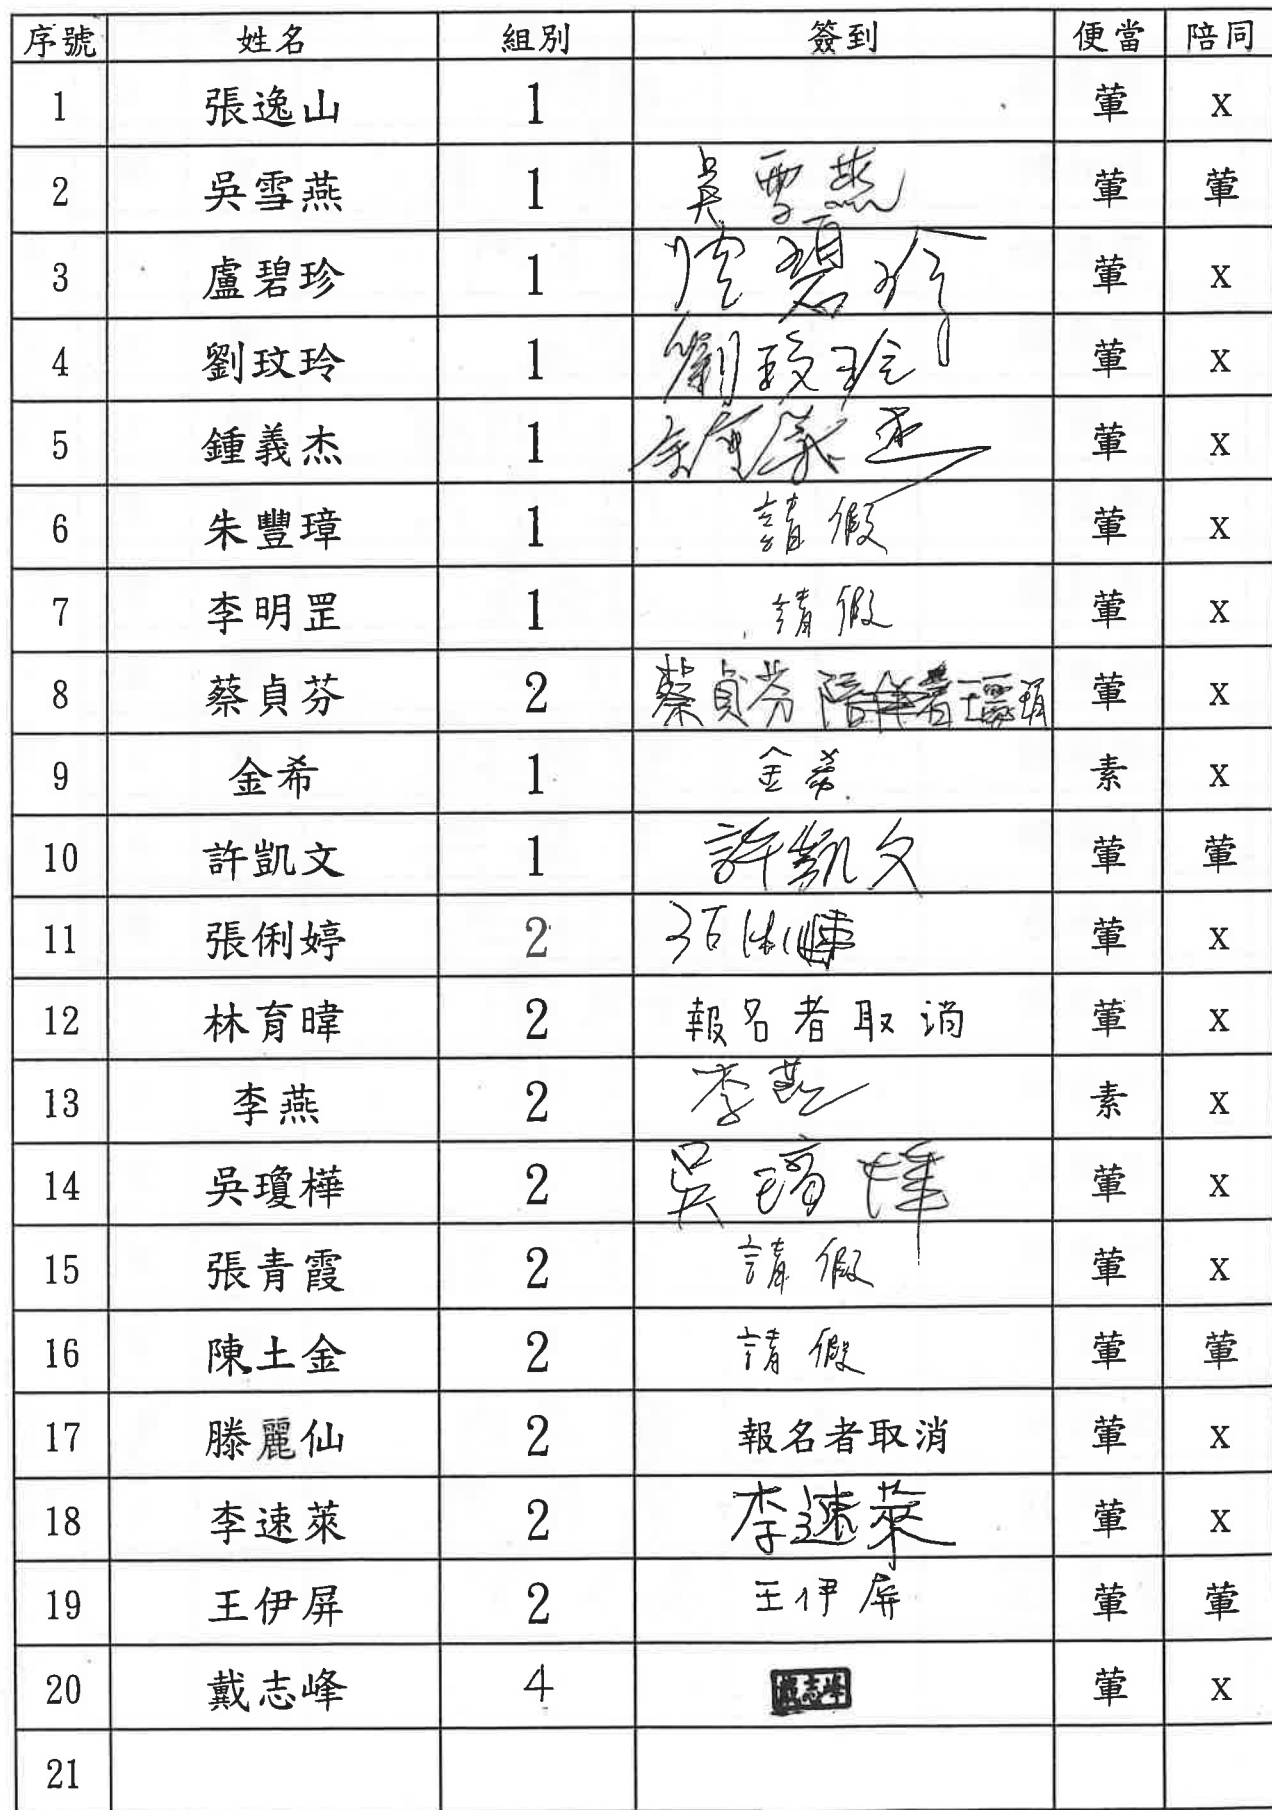 序號 姓名 組別 簽到 便當 陪同
1 張逸山 1 葷 x
2 吳雪燕 1 吳雪燕 葷 葷
3 盧碧珍 1 碧珍 葷 x
4 劉玟玲 1 劉玟玲 葷 x
5 鍾義杰 1 鍾義杰 葷 x
6 朱豐璋 1 請假 葷 x
7 李明罡 1 請假 葷 x
8 蔡貞芬 2 蔡貞芬 葷 x
9 金希 1 金希 素 x
10 許凱文 1 許凱文 葷 葷
11 張俐婷 2 葷 x
12 林育暐 2 報名者取消 葷 x
13 李燕 2 李燕 素 x
14 吳瓊樺 2 吳瓊樺 葷 x
15 張青霞 2 請假 葷 x
16 陳土金 2 請假 葷 葷
17 滕麗仙 2 報名者取消 葷 x
18 李速萊 2 李速萊 葷 x
19 王伊屏 2 王伊屏 葷 葷
20 戴志峰 4 戴志峰 葷 x
21